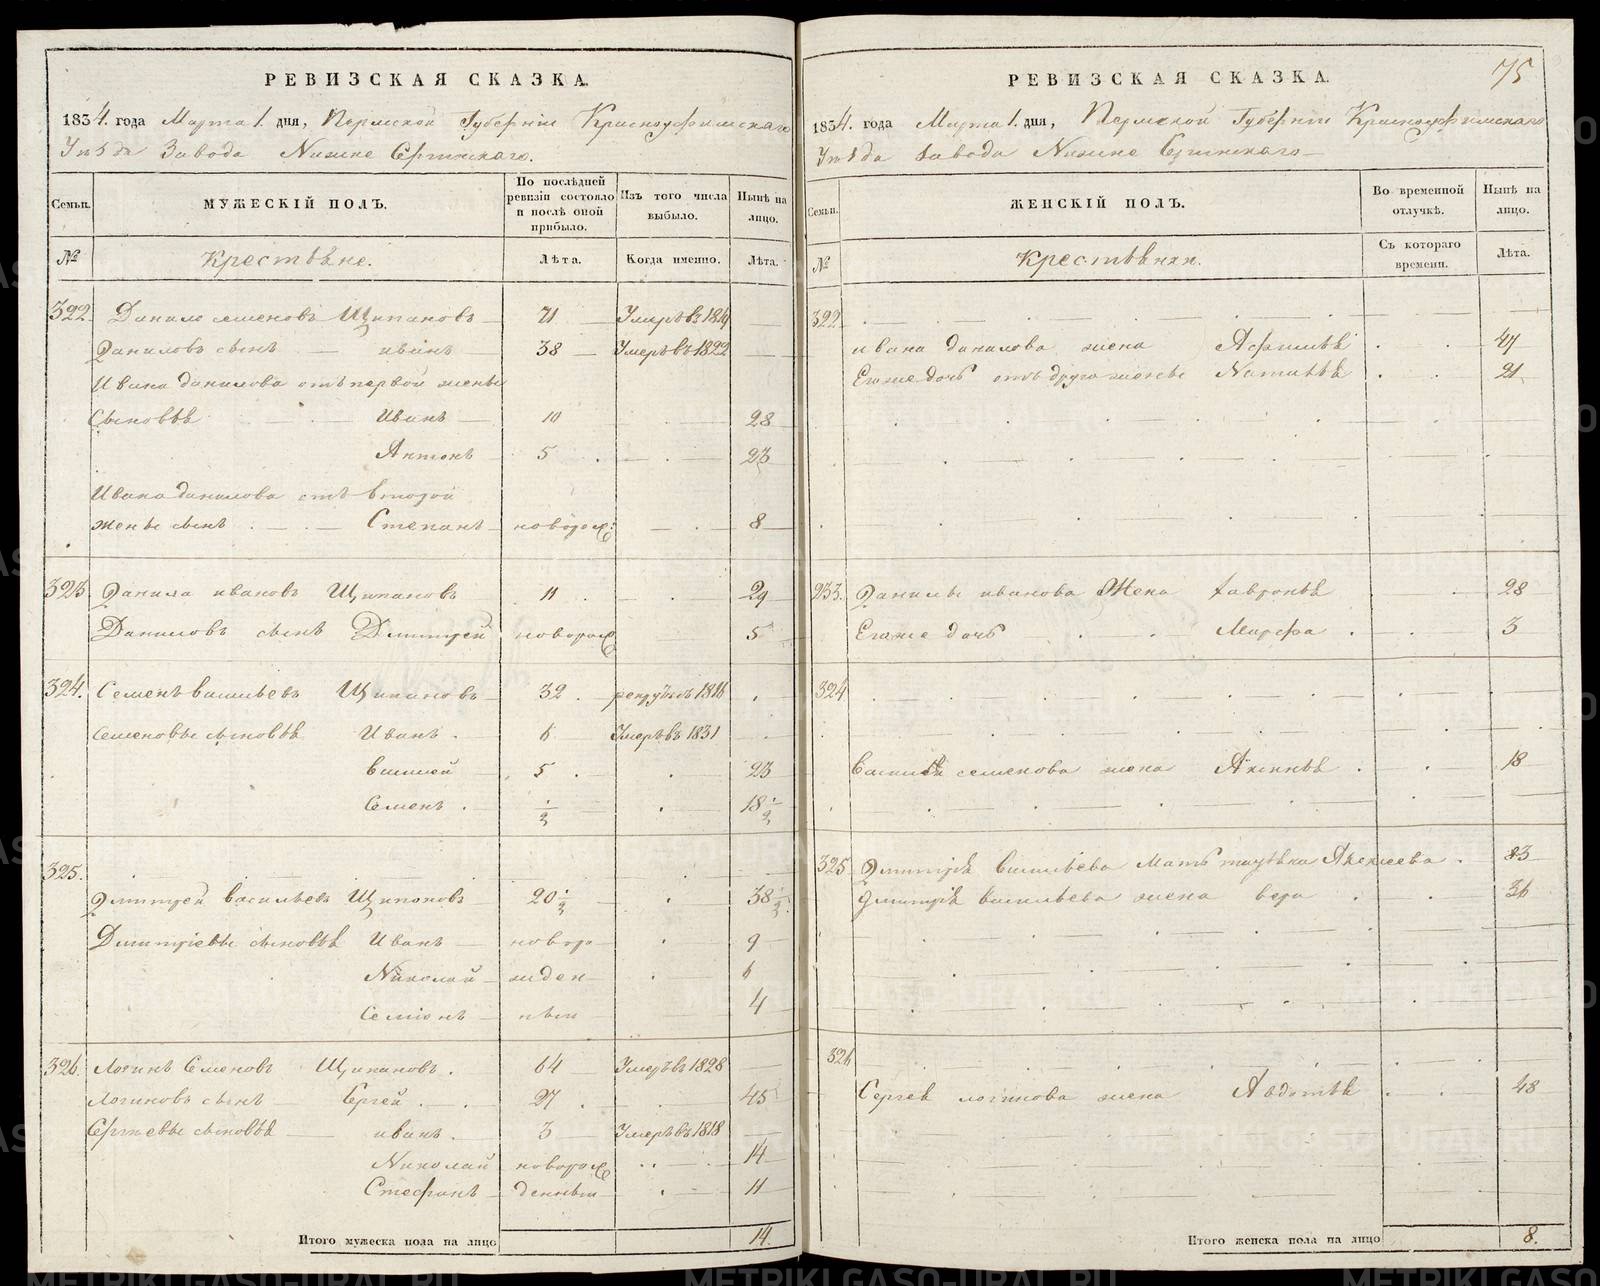 РЕВИЗСКАЯ СКАЗКА.
1834. года Марта 1. дня, Пермской Губернiи Красноуфимскаго
Уѣзда Завода Нижне Сергинскаго.
Семьи.
МУЖЕСКIЙ ПОЛЪ.
По послѣдней ревизiи состояло и послѣ оной прибыло.
Изъ того числа выбыло.
Нынѣ на лицо.
№
Крестьяне.
Лѣта.
Когда именно.
Лѣта.
322. Данило семеновъ Щипановъ 71 Умеръ въ 1819
Даниловъ сынъ иванъ 38 Умеръ въ 1822
Ивана данилова отъ первой жены
Сыновья Иванъ 10 28
Антонъ 5 23
Ивана данилова отъ второй
жены сынъ Степанъ новорож: 8
323 Данила ивановъ Щипановъ 11 29
Даниловъ сынъ Дмитрей новорож 5
324. Семенъ васильевъ Щипановъ 32 рекрутъ въ 1816
Семеновы сыновья Иванъ 6 Умеръ въ 1831
василей 5 23
Семенъ ½ 18½
325.
Дмитрей васильевъ Щипановъ 20½ 38½
Дмитрiевы сыновья Иванъ новоро 9
Николай жден 6
Семiонъ ныи 4
326. Логинъ Семеновъ Щипановъ 64 Умеръ въ 1828
Логиновъ сынъ Сергей 27 45
Сергѣевы сыновья иванъ 3 Умеръ въ 1818
Николай новорож 14
Стефанъ денныи 11
Итого мужеска пола на лицо 14.
75
РЕВИЗСКАЯ СКАЗКА.
1834. года Марта 1. дня, Пермской Губернiи Красноуфимскаго
Уѣзда Завода Нижне Сергинскаго
Семьи.
ЖЕНСКIЙ ПОЛЪ.
Во временной отлучкѣ.
Нынѣ на лицо.
№
Крестьянки.
Съ котораго времени.
Лѣта.
322
ивана данилова жена Афимья 47
Егоже дочь отъ другой жены Наталья 21
233. Данилы иванова Жена Хавронья 28
Егоже дочь Марфа 3
324
Василья семенова жена Аксинья 18
325 Дмитрiя васильева Мать Алексеева 83
Дмитрiя васильева жена вера 36
326
Сергея логинова жена Авдотья 48
Итого женска пола на лицо 8.
METRIKI.GASO-URAL.RU